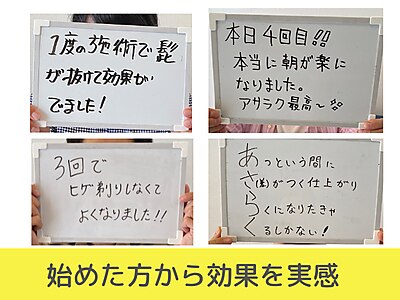 1度の施術で髭
が抜けて効果が
でました!
本日4回目!!
本当に朝が楽に
なりました。
アサラク最高〜
3回で
ヒゲ剃りしなくて
よくなりました!!
あっという間に
さ(差)がつく仕上がり
らくになりたきゃ
くるしかない!
始めた方から効果を実感